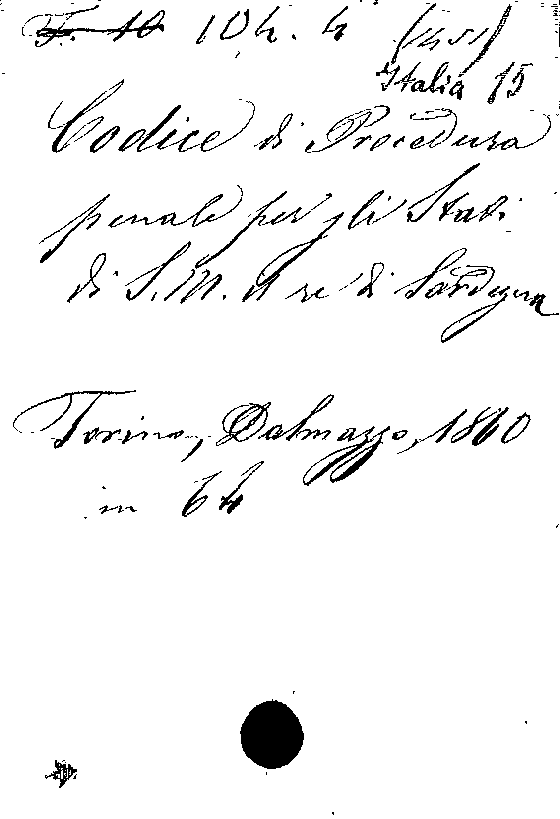 F. 10 104. 4 (1451)
Italia 15
Codice di Procedura
penale per gli Stati
di S. M. il re di Sardegna
Torino, Dalmazzo, 1860
in 64